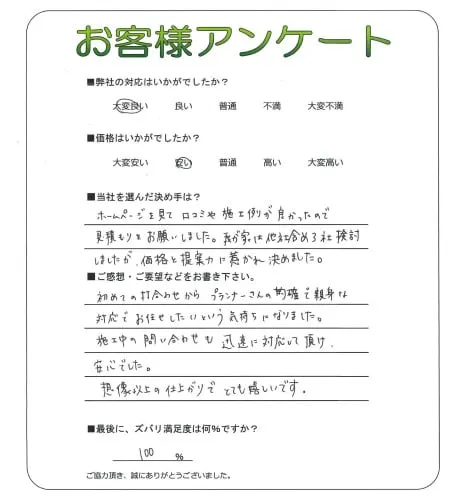 お客様アンケート
■弊社の対応はいかがでしたか？
大変良い 良い 普通 不満 大変不満
■価格はいかがでしたか？
大変安い 安い 普通 高い 大変高い
■当社を選んだ決め手は？
ホームページを見て 口コミや 施工例が 良かったので
見積もりを お願いしました。我が家は 他社含め 3社 検討
しましたが、価格と 提案力に 惹かれ 決めました。
■ご感想・ご要望などをお書き下さい。
初めての 打合わせから プランナーさんの 的確で 親身な
対応で お任せしたいという 気持ちに なりました。
施工中の 問い合わせも 迅速に 対応して 頂け、
安心でした。
想像以上の 仕上がりで とても 嬉しいです。
■最後に、ズバリ満足度は何％ですか？
100 ％
ご協力頂き、誠にありがとうございました。